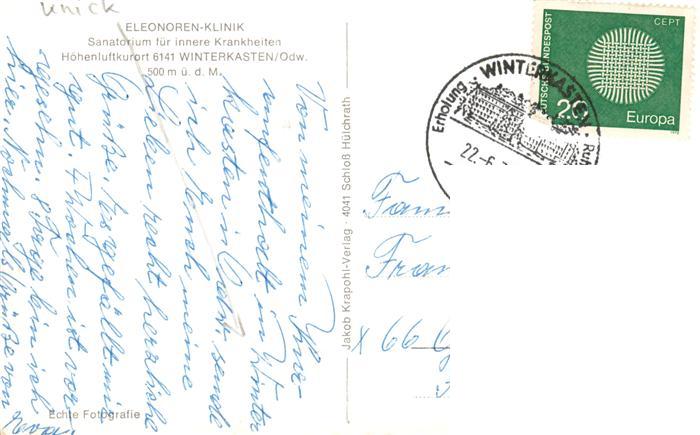 unick
ELEONOREN-KLINIK
Sanatorium für innere Krankheiten
Höhenluftkurort 6141 WINTERKASTEN/Odw.
500 m ü. d. M.
Von meinem Kur-
aufenthalt in Winter
kasten in Odw. sende
ich Euch meine
lieben recht herzliche
Grüße. Es gefällt mir
gut. 4 Wochen ist vor
gesehn. 8 Tage bin ich
hier. Nochmals Grüße von
Eva.
Echte Fotografie
Jakob Krapohl-Verlag · 4041 Schloß Hülchrath
DEUTSCHE BUNDESPOST
CEPT
20
Europa
Erholung · WINTERKASTEN · Ruh
22.-6.
Fam
Fran
X 66